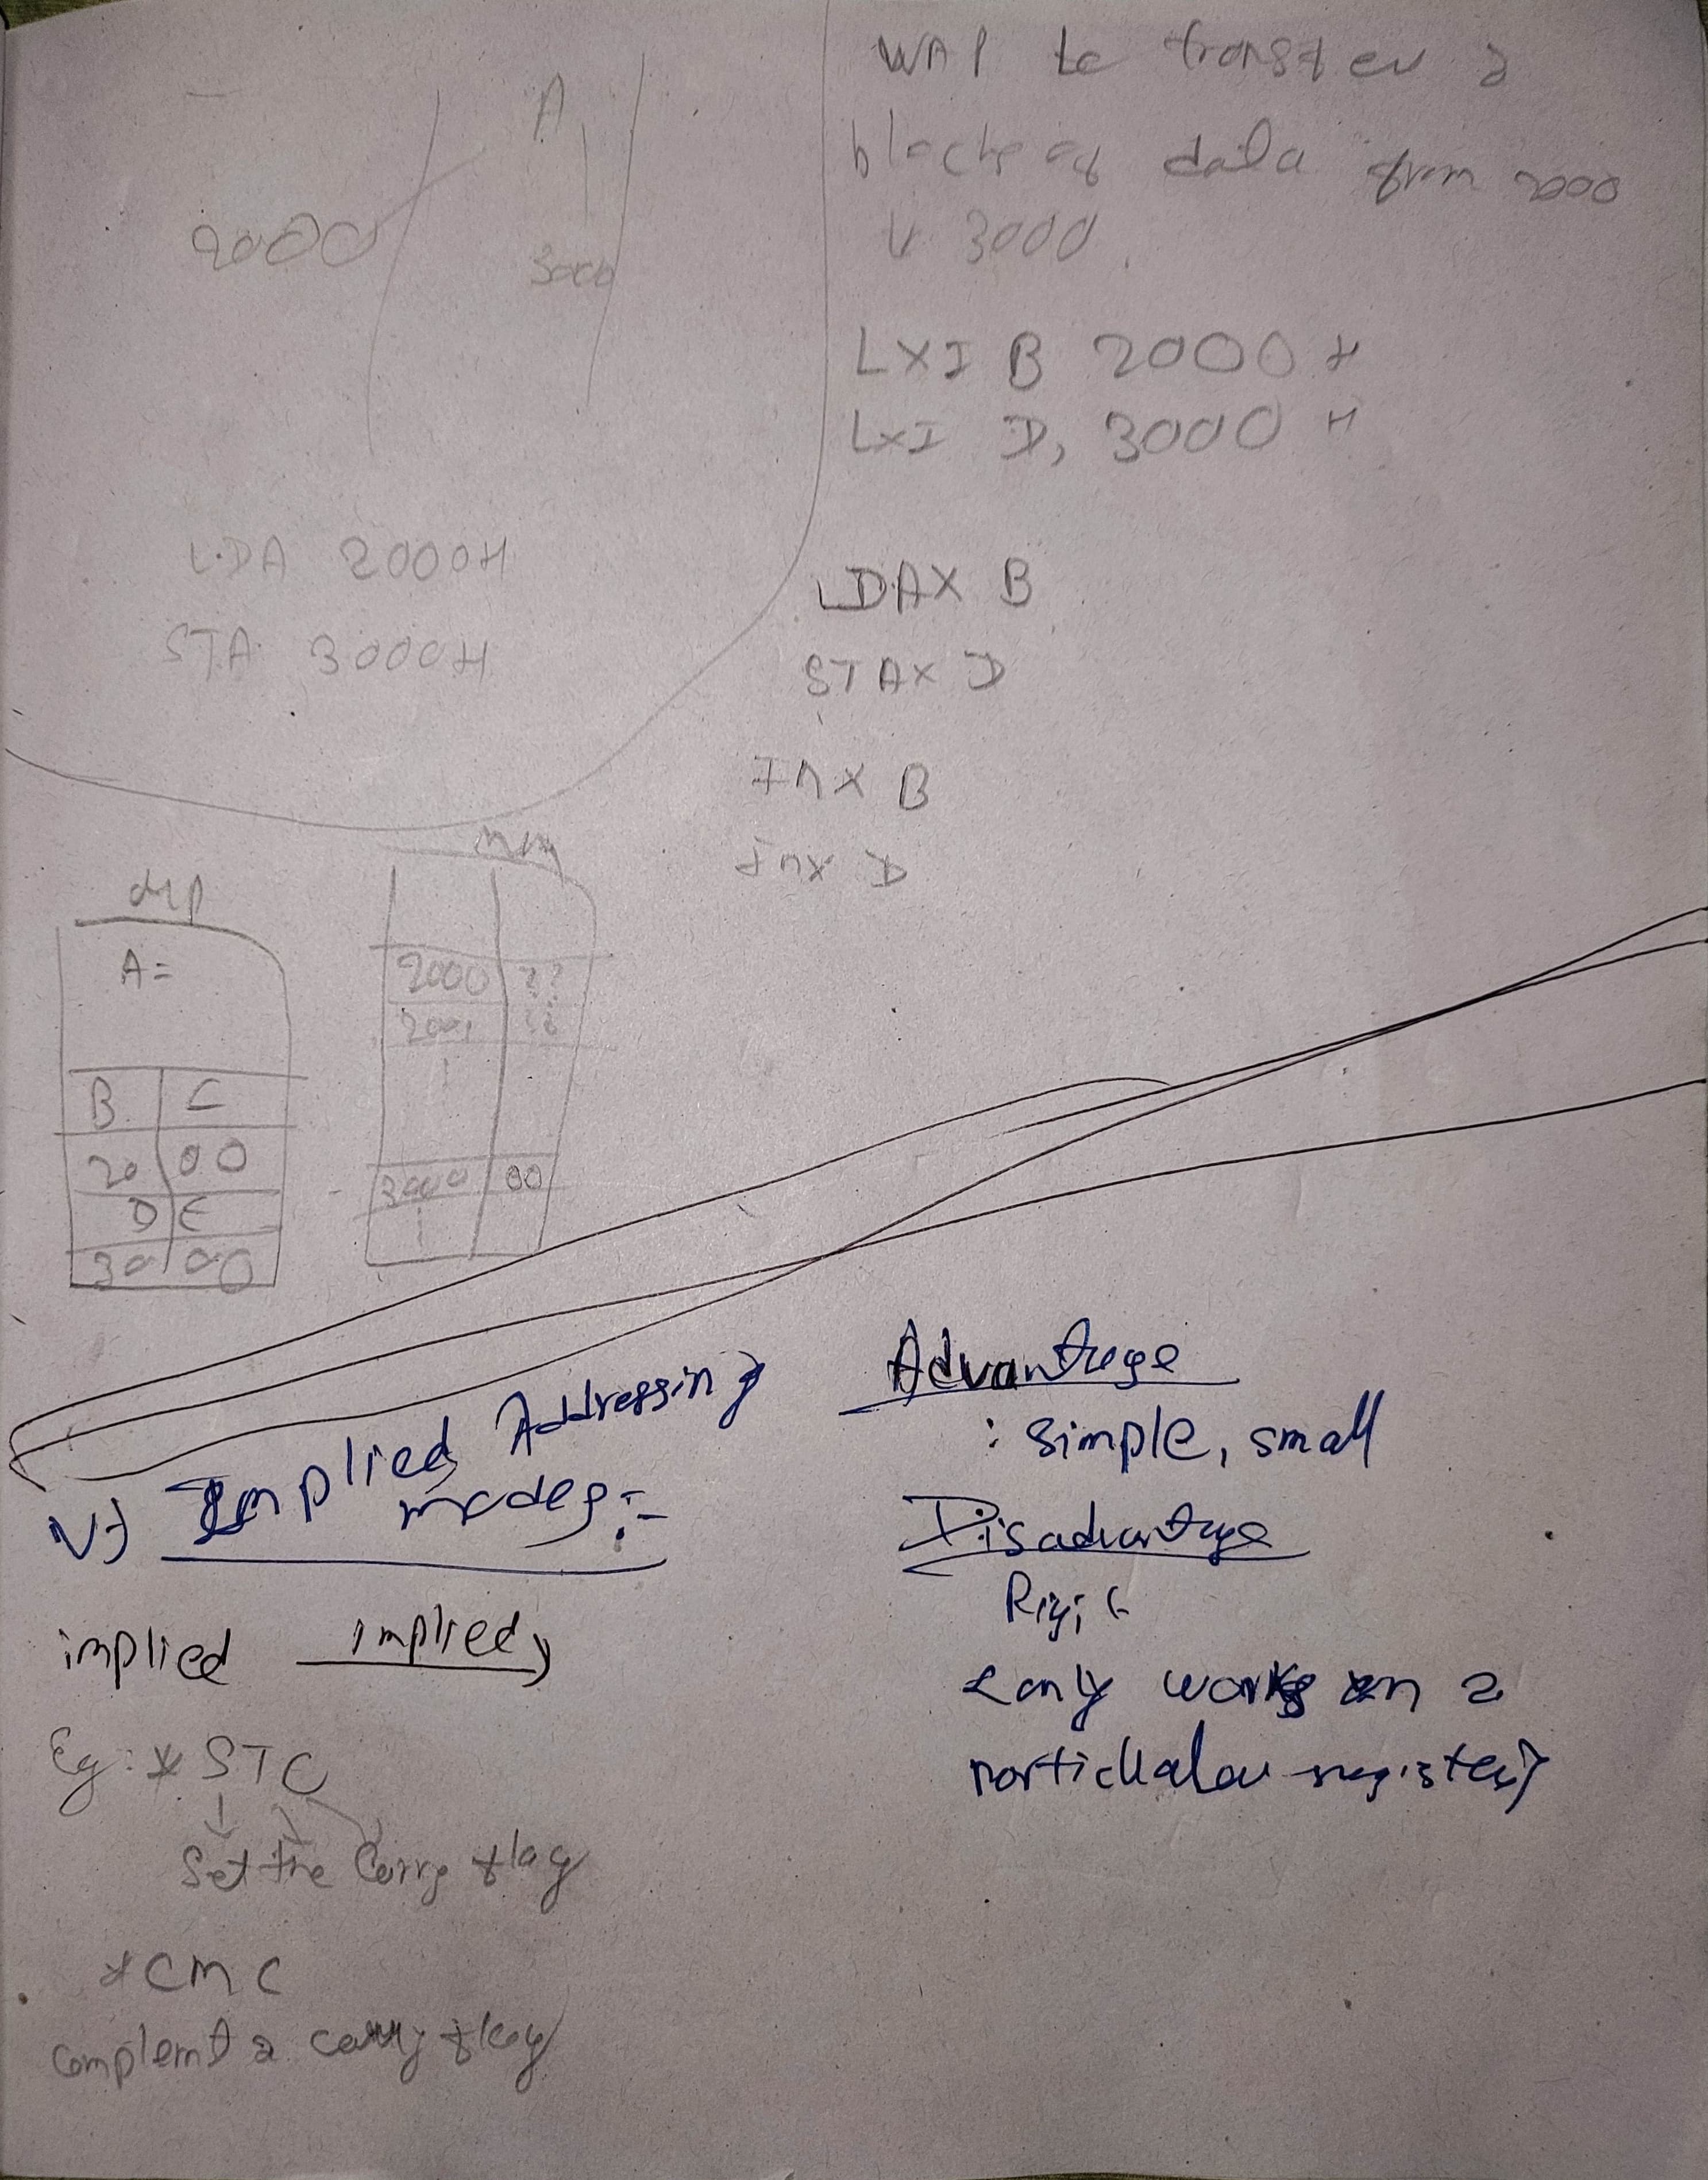 A
2000
3000
LDA 2000H
STA 3000H
WAP to transfer 2
blocks of data from 2000
3000.
LXI B 2000 H
LXI D, 3000 H
LDAX B
STAX D
INX B
Inx D
A=
B C
20 00
D E
30 00
mm
2000 ??
2001
3000 00
V) Implied Addressing
modes:-
implied implied
Eg: * STC
Set the Carry flag
* CMC
Complemt a carry flag
Advantage
: simple, small
Disadvantage
only works on a